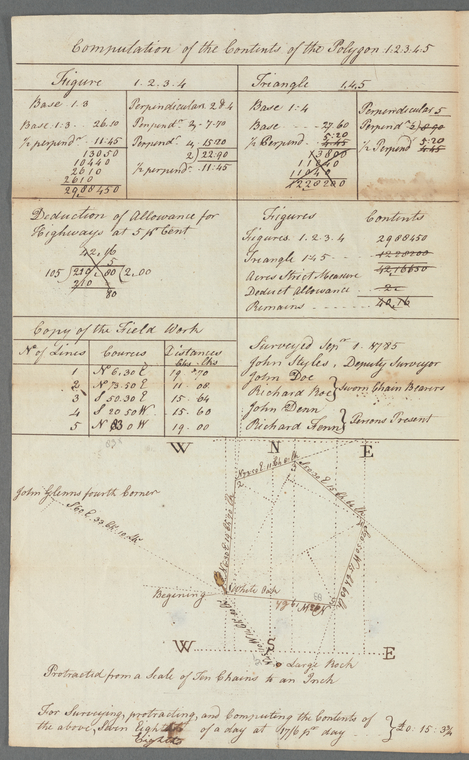 Computation of the Contents of the Polygon 1.2.3.4.5
Figure 1.2.3.4
Base 1.3
Base 1.3 - 26.10
½ perpend.r - 11.45
13050
10440
2610
2610
2988450
Perpendiculars 2 & 4
Perpend.r 2, - 7-70
Perpend.r 4, 15.20
2)22.90
½ perpend.r - 11.45
Triangle 1,4,5
Base 1.4
Base 27.60
5.20
½ Perpend. 4.45
13800
11040
11040
1228200
Perpendicular 5
Perpend.r 2)8.90
5.20
½ Perpend 4.45
Deduction of Allowance for
Highways at 5 pr Cent
42,16
5
105)210.80(2,00
210
80
Figures Contents
Figures 1.2.3.4 2988450
Triangle 1.4.5 1228200
Acres Strict Measure 4216650
Deduct Allowance 2.
Remains 40,16
Copy of the Field Work
No. of Lines Cources Distances
Chs. Lks
1 No 6.30 E 19.70
2 No 73.50 E 11.08
3 S 50.30 E 15.64
4 S 20.50 W 15.60
5 N 83 0 W 19.00
Surveyed Sepr. 1. 1785
John Styles, Deputy Surveyor
John Doe
Richard Roe } Sworn Chain Bearers
John Denn
Richard Fenn } Persons Present
W N E
John Glenns fourth Corner
2
3
White Oak
Begining
W S E
Large Rock
Protracted from a Scale of Ten Chains to an Inch
For Surveying, protracting, and Computing the Contents of
the above, Seven Eighths of a day at 17/6 pr day
Eighths